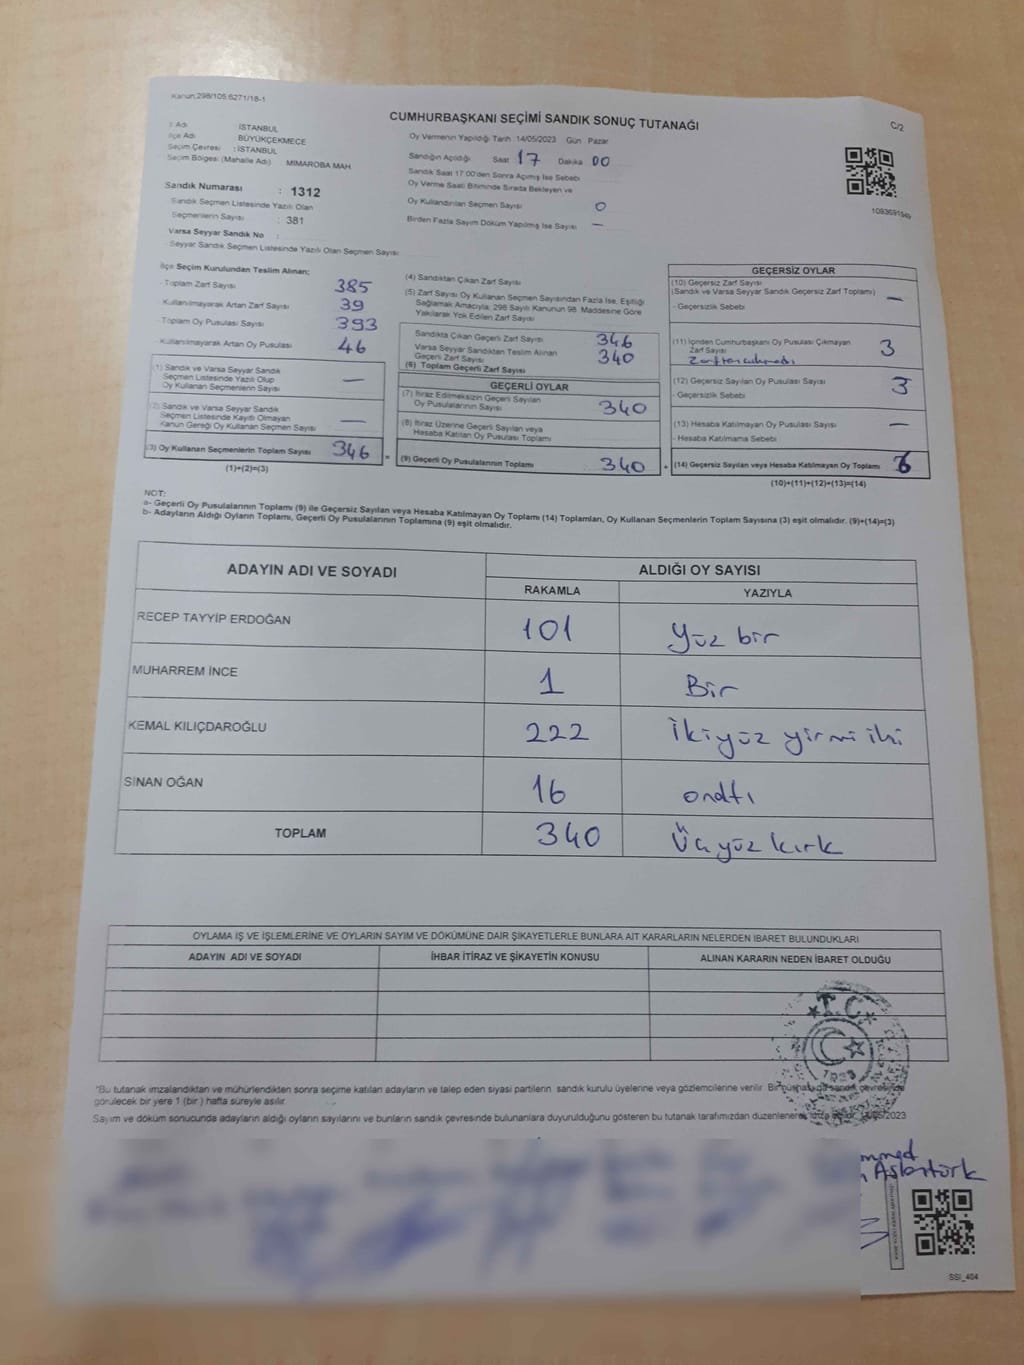 Kanun,298/105;6271/18-1
CUMHURBAŞKANI SEÇİMİ SANDIK SONUÇ TUTANAĞI
C/2
İl Adı : İSTANBUL
İlçe Adı BÜYÜKÇEKMECE
Seçim Çevresi : İSTANBUL
Seçim Bölgesi (Mahalle Adı) MİMAROBA MAH.
Sandık Numarası : 1312
Sandık Seçmen Listesinde Yazılı Olan
Seçmenlerin Sayısı : 381
Varsa Seyyar Sandık No :
Seyyar Sandık Seçmen Listesinde Yazılı Olan Seçmen Sayısı:
Oy Vermenin Yapıldığı Tarih 14/05/2023 Gün : Pazar
Sandığın Açıldığı Saat 17 Dakika 00
Sandık Saat 17.00'den Sonra Açmış İse Sebebi
Oy Verme Saati Bitiminde Sırada Bekleyen ve
Oy Kullandırılan Seçmen Sayısı 0
Birden Fazla Sayım Döküm Yapılmış İse Sayısı —
İlçe Seçim Kurulundan Teslim Alınan;
- Toplam Zarf Sayısı 385
- Kullanılmayarak Artan Zarf Sayısı 39
- Toplam Oy Pusulası Sayısı 393
- Kullanılmayarak Artan Oy Pusulası 46
(1) Sandık ve Varsa Seyyar Sandık
Seçmen Listesinde Yazılı Olup
Oy Kullanan Seçmenlerin Sayısı —
(2) Sandık ve Varsa Seyyar Sandık
Seçmen Listesinde Kayıtlı Olmayan
Kanun Gereği Oy Kullanan Seçmen Sayısı —
(3) Oy Kullanan Seçmenlerin Toplam Sayısı 346
(1)+(2)=(3)
(4) Sandıktan Çıkan Zarf Sayısı
(5) Zarf Sayısı Oy Kullanan Seçmen Sayısından Fazla İse, Eşitliği
Sağlamak Amacıyla; 298 Sayılı Kanunun 98. Maddesine Göre
Yakılarak Yok Edilen Zarf Sayısı
Sandıkta Çıkan Geçerli Zarf Sayısı 346
Varsa Seyyar Sandıktan Teslim Alınan
Geçerli Zarf Sayısı 340
(6) Toplam Geçerli Zarf Sayısı
GEÇERLİ OYLAR
(7) İtiraz Edilmeksizin Geçerli Sayılan
Oy Pusulalarının Sayısı 340
(8) İtiraz Üzerine Geçerli Sayılan veya
Hesaba Katılan Oy Pusulası Toplamı
= (9) Geçerli Oy Pusulalarının Toplamı 340 +
GEÇERSİZ OYLAR
(10) Geçersiz Zarf Sayısı
(Sandık ve Varsa Seyyar Sandık Geçersiz Zarf Toplamı) —
- Geçersizlik Sebebi
(11) İçinden Cumhurbaşkanı Oy Pusulası Çıkmayan
Zarf Sayısı 3
(12) Geçersiz Sayılan Oy Pusulası Sayısı 3
- Geçersizlik Sebebi
(13) Hesaba Katılmayan Oy Pusulası Sayısı —
- Hesaba Katılmama Sebebi
(14) Geçersiz Sayılan veya Hesaba Katılmayan Oy Toplamı 6
(10)+(11)+(12)+(13)=(14)
NOT:
a- Geçerli Oy Pusulalarının Toplamı (9) ile Geçersiz Sayılan veya Hesaba Katılmayan Oy Toplamı (14) Toplamları, Oy Kullanan Seçmenlerin Toplam Sayısına (3) eşit olmalıdır. (9)+(14)=(3)
b- Adayların Aldığı Oyların Toplamı, Geçerli Oy Pusulalarının Toplamına (9) eşit olmalıdır.
ADAYIN ADI VE SOYADI ALDIĞI OY SAYISI
RAKAMLA YAZIYLA
RECEP TAYYİP ERDOĞAN 101 Yüz bir
MUHARREM İNCE 1 Bir
KEMAL KILIÇDAROĞLU 222 İkiyüz yirmi iki
SİNAN OĞAN 16 onaltı
TOPLAM 340 Üçyüz kırk
OYLAMA İŞ VE İŞLEMLERİNE VE OYLARIN SAYIM VE DÖKÜMÜNE DAİR ŞİKAYETLERLE BUNLARA AİT KARARLARIN NELERDEN İBARET BULUNDUKLARI
ADAYIN ADI VE SOYADI İHBAR İTİRAZ VE ŞİKAYETİN KONUSU ALINAN KARARIN NEDEN İBARET OLDUĞU
T.C.
1923
"Bu tutanak imzalandıktan ve mühürlendikten sonra seçime katılan adayların ve talep eden siyasi partilerin sandık kurulu üyelerine veya gözlemcilerine verilir. Bir nüshası da sandık çevresinde
görülecek bir yere 1 (bir) hafta süreyle asılır.
Sayım ve döküm sonucunda adayların aldığı oyların sayılarını ve bunların sandık çevresinde bulunanlara duyurulduğunu gösteren bu tutanak tarafımızdan düzenlenerek
Aslantürk
SSİ_404